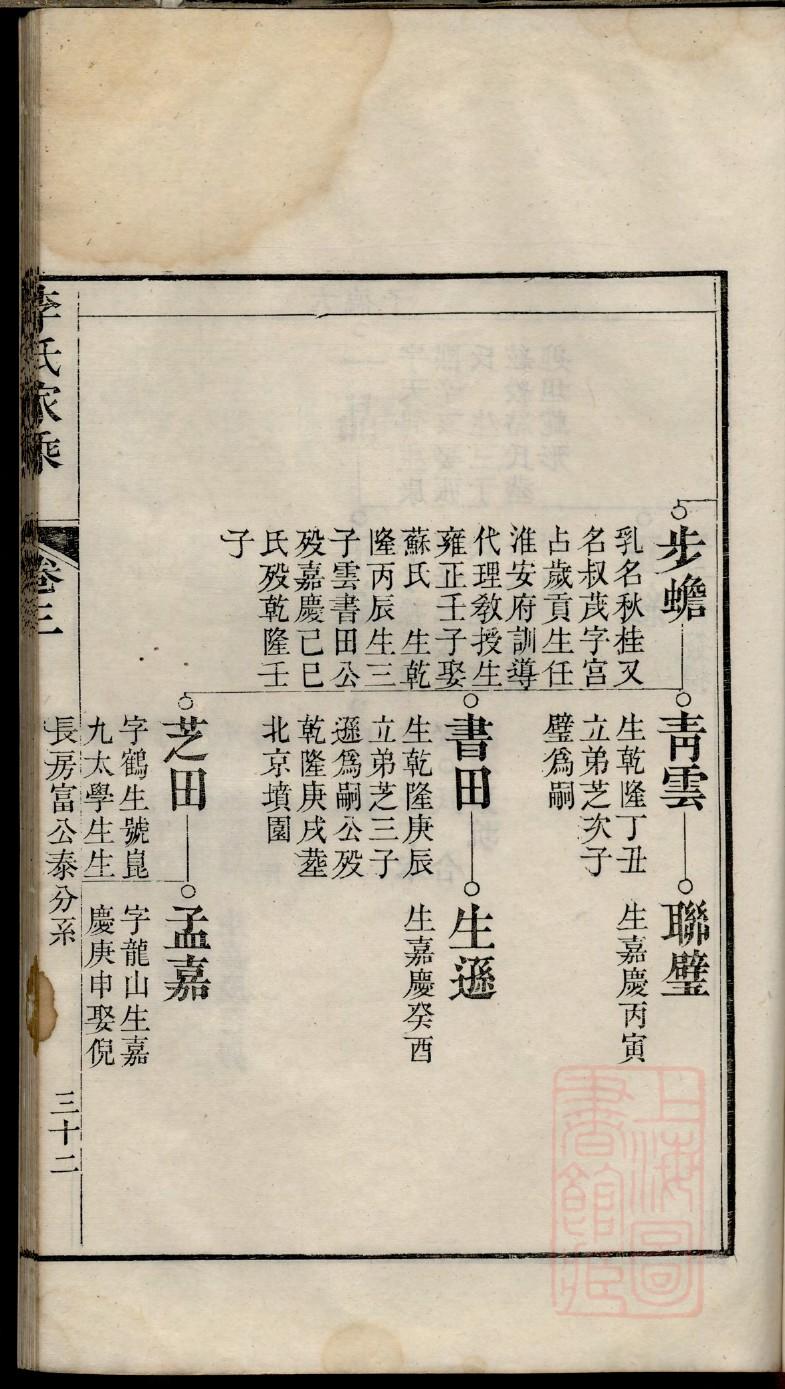 步蟾
乳名秋桂又
名叔茂字宮
占歲貢生任
淮安府訓導
代理敎授生
雍正壬子娶
蘇氏 生乾
隆丙辰生三
子雲書田公
殁嘉慶己巳
氏殁乾隆壬
子
靑雲
生乾隆丁丑
立弟芝次子
璧爲嗣
聯璧
生嘉慶丙寅
書田
生乾隆庚辰
立弟芝三子
遜爲嗣公殁
乾隆庚戌塟
北京墳園
生遜
生嘉慶癸酉
芝田
字鶴生號崑
九太學生生
孟嘉
字龍山生嘉
慶庚申娶倪
長房富公泰分系
三十二
李氏家乘
卷三
上海圖
書館藏